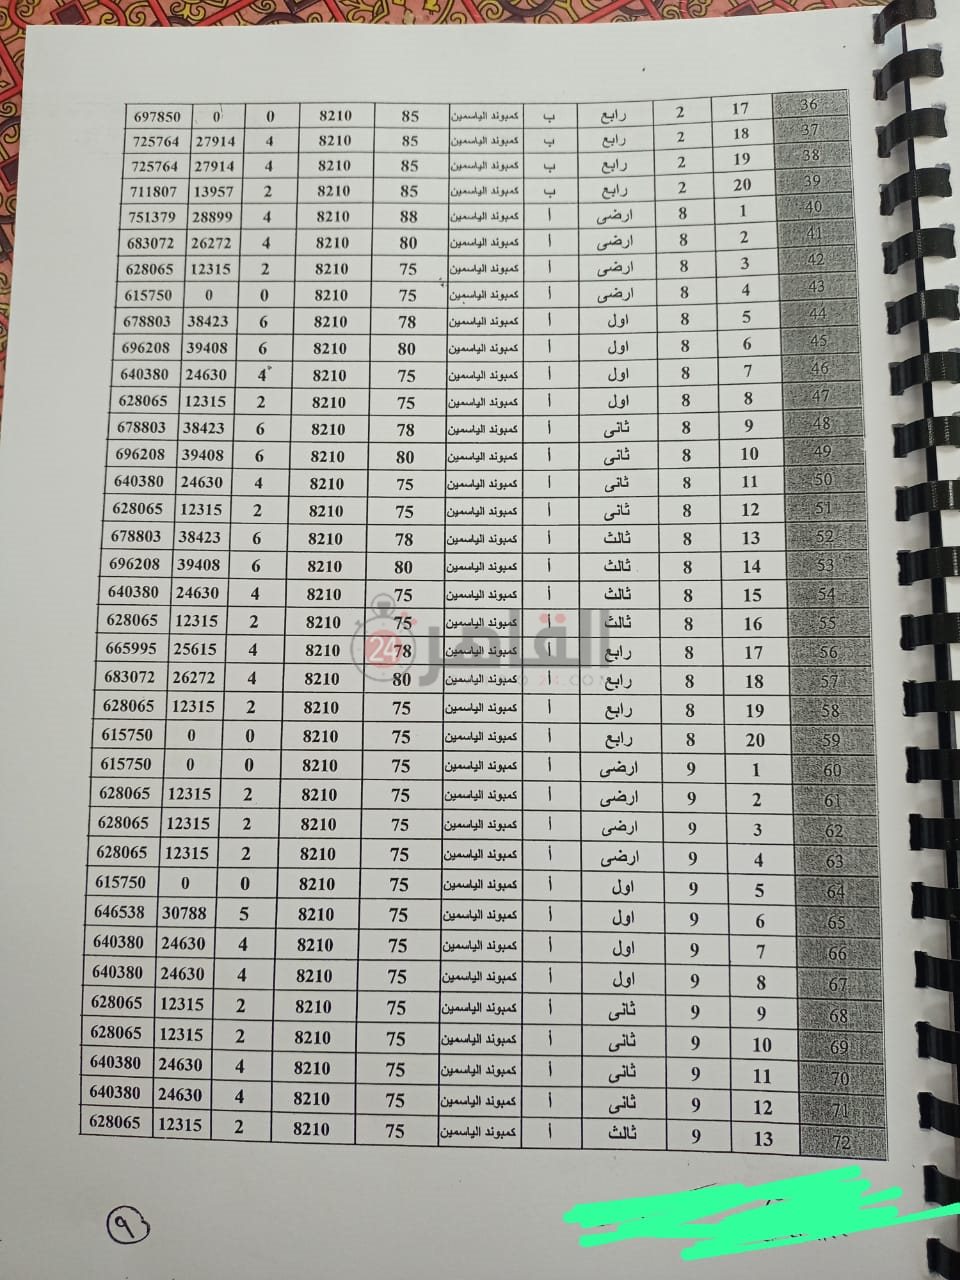 36 17 2 رابع ب كمبوند الياسمين 85 8210 0 0 697850
37 18 2 رابع ب كمبوند الياسمين 85 8210 4 27914 725764
38 19 2 رابع ب كمبوند الياسمين 85 8210 4 27914 725764
39 20 2 رابع ب كمبوند الياسمين 85 8210 2 13957 711807
40 1 8 ارضى أ كمبوند الياسمين 88 8210 4 28899 751379
41 2 8 ارضى أ كمبوند الياسمين 80 8210 4 26272 683072
42 3 8 ارضى أ كمبوند الياسمين 75 8210 2 12315 628065
43 4 8 ارضى أ كمبوند الياسمين 75 8210 0 0 615750
44 5 8 اول أ كمبوند الياسمين 78 8210 6 38423 678803
45 6 8 اول أ كمبوند الياسمين 80 8210 6 39408 696208
46 7 8 اول أ كمبوند الياسمين 75 8210 4 24630 640380
47 8 8 اول أ كمبوند الياسمين 75 8210 2 12315 628065
48 9 8 ثانى أ كمبوند الياسمين 78 8210 6 38423 678803
49 10 8 ثانى أ كمبوند الياسمين 80 8210 6 39408 696208
50 11 8 ثانى أ كمبوند الياسمين 75 8210 4 24630 640380
51 12 8 ثانى أ كمبوند الياسمين 75 8210 2 12315 628065
52 13 8 ثالث أ كمبوند الياسمين 78 8210 6 38423 678803
53 14 8 ثالث أ كمبوند الياسمين 80 8210 6 39408 696208
54 15 8 ثالث أ كمبوند الياسمين 75 8210 4 24630 640380
55 16 8 ثالث أ كمبوند الياسمين 75 8210 2 12315 628065
القاهرة 24
56 17 8 رابع أ كمبوند الياسمين 78 8210 4 25615 665995
57 18 8 رابع أ كمبوند الياسمين 80 8210 4 26272 683072
58 19 8 رابع أ كمبوند الياسمين 75 8210 2 12315 628065
59 20 8 رابع أ كمبوند الياسمين 75 8210 0 0 615750
60 1 9 ارضى أ كمبوند الياسمين 75 8210 0 0 615750
61 2 9 ارضى أ كمبوند الياسمين 75 8210 2 12315 628065
62 3 9 ارضى أ كمبوند الياسمين 75 8210 2 12315 628065
63 4 9 ارضى أ كمبوند الياسمين 75 8210 2 12315 628065
64 5 9 اول أ كمبوند الياسمين 75 8210 0 0 615750
65 6 9 اول أ كمبوند الياسمين 75 8210 5 30788 646538
66 7 9 اول أ كمبوند الياسمين 75 8210 4 24630 640380
67 8 9 اول أ كمبوند الياسمين 75 8210 4 24630 640380
68 9 9 ثانى أ كمبوند الياسمين 75 8210 2 12315 628065
69 10 9 ثانى أ كمبوند الياسمين 75 8210 2 12315 628065
70 11 9 ثانى أ كمبوند الياسمين 75 8210 4 24630 640380
71 12 9 ثانى أ كمبوند الياسمين 75 8210 4 24630 640380
72 13 9 ثالث أ كمبوند الياسمين 75 8210 2 12315 628065
٩